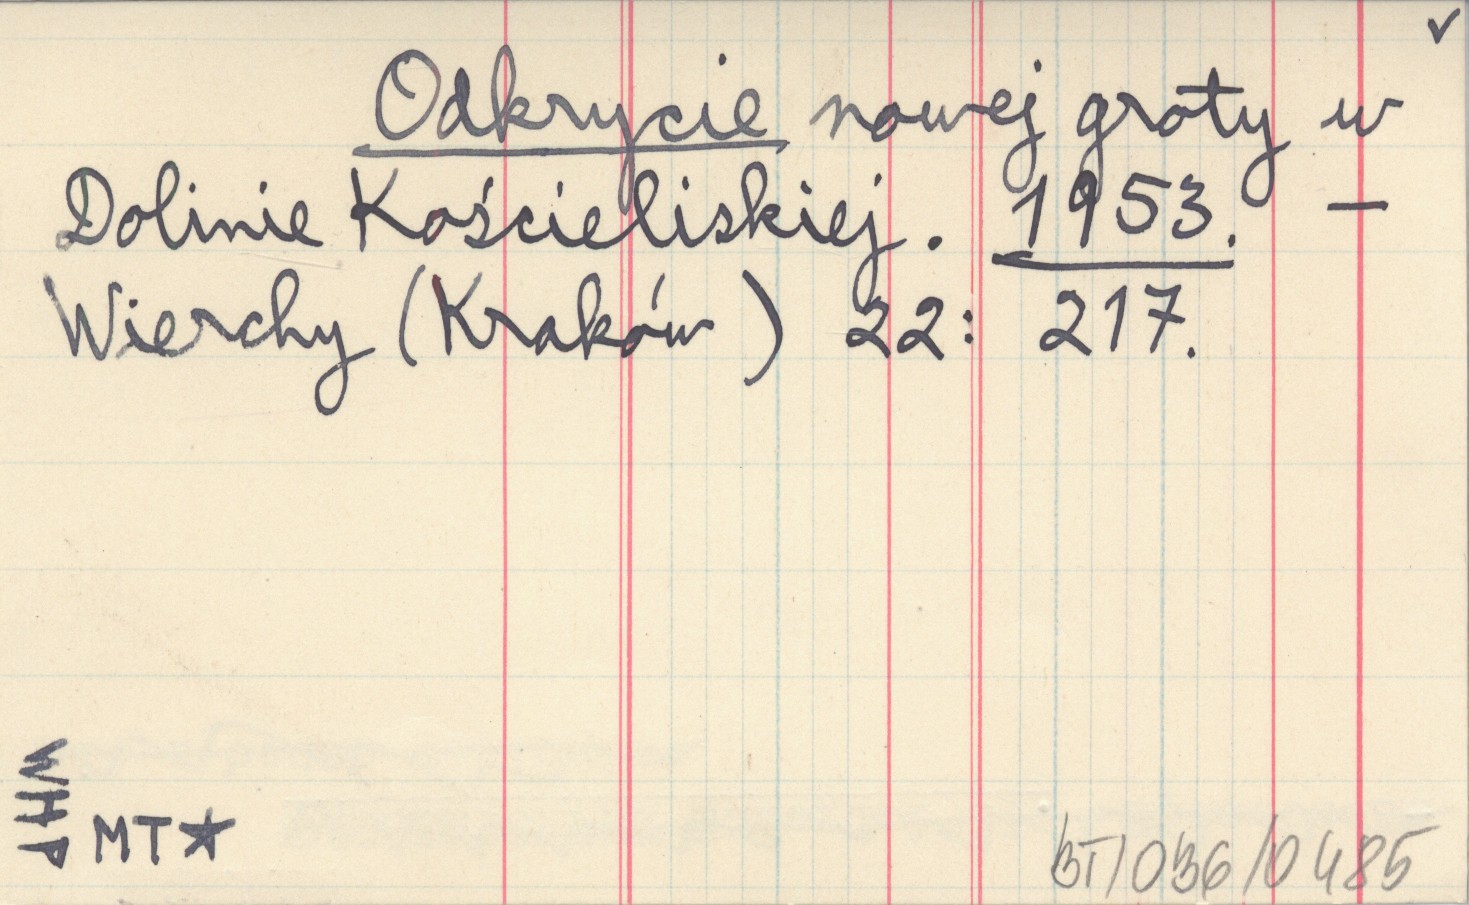 ✓
Odkrycie nowej groty w
Dolinie Kościeliskiej. 1953. –
Wierchy (Kraków) 22: 217.
WHP
MT★
BT/036/0485